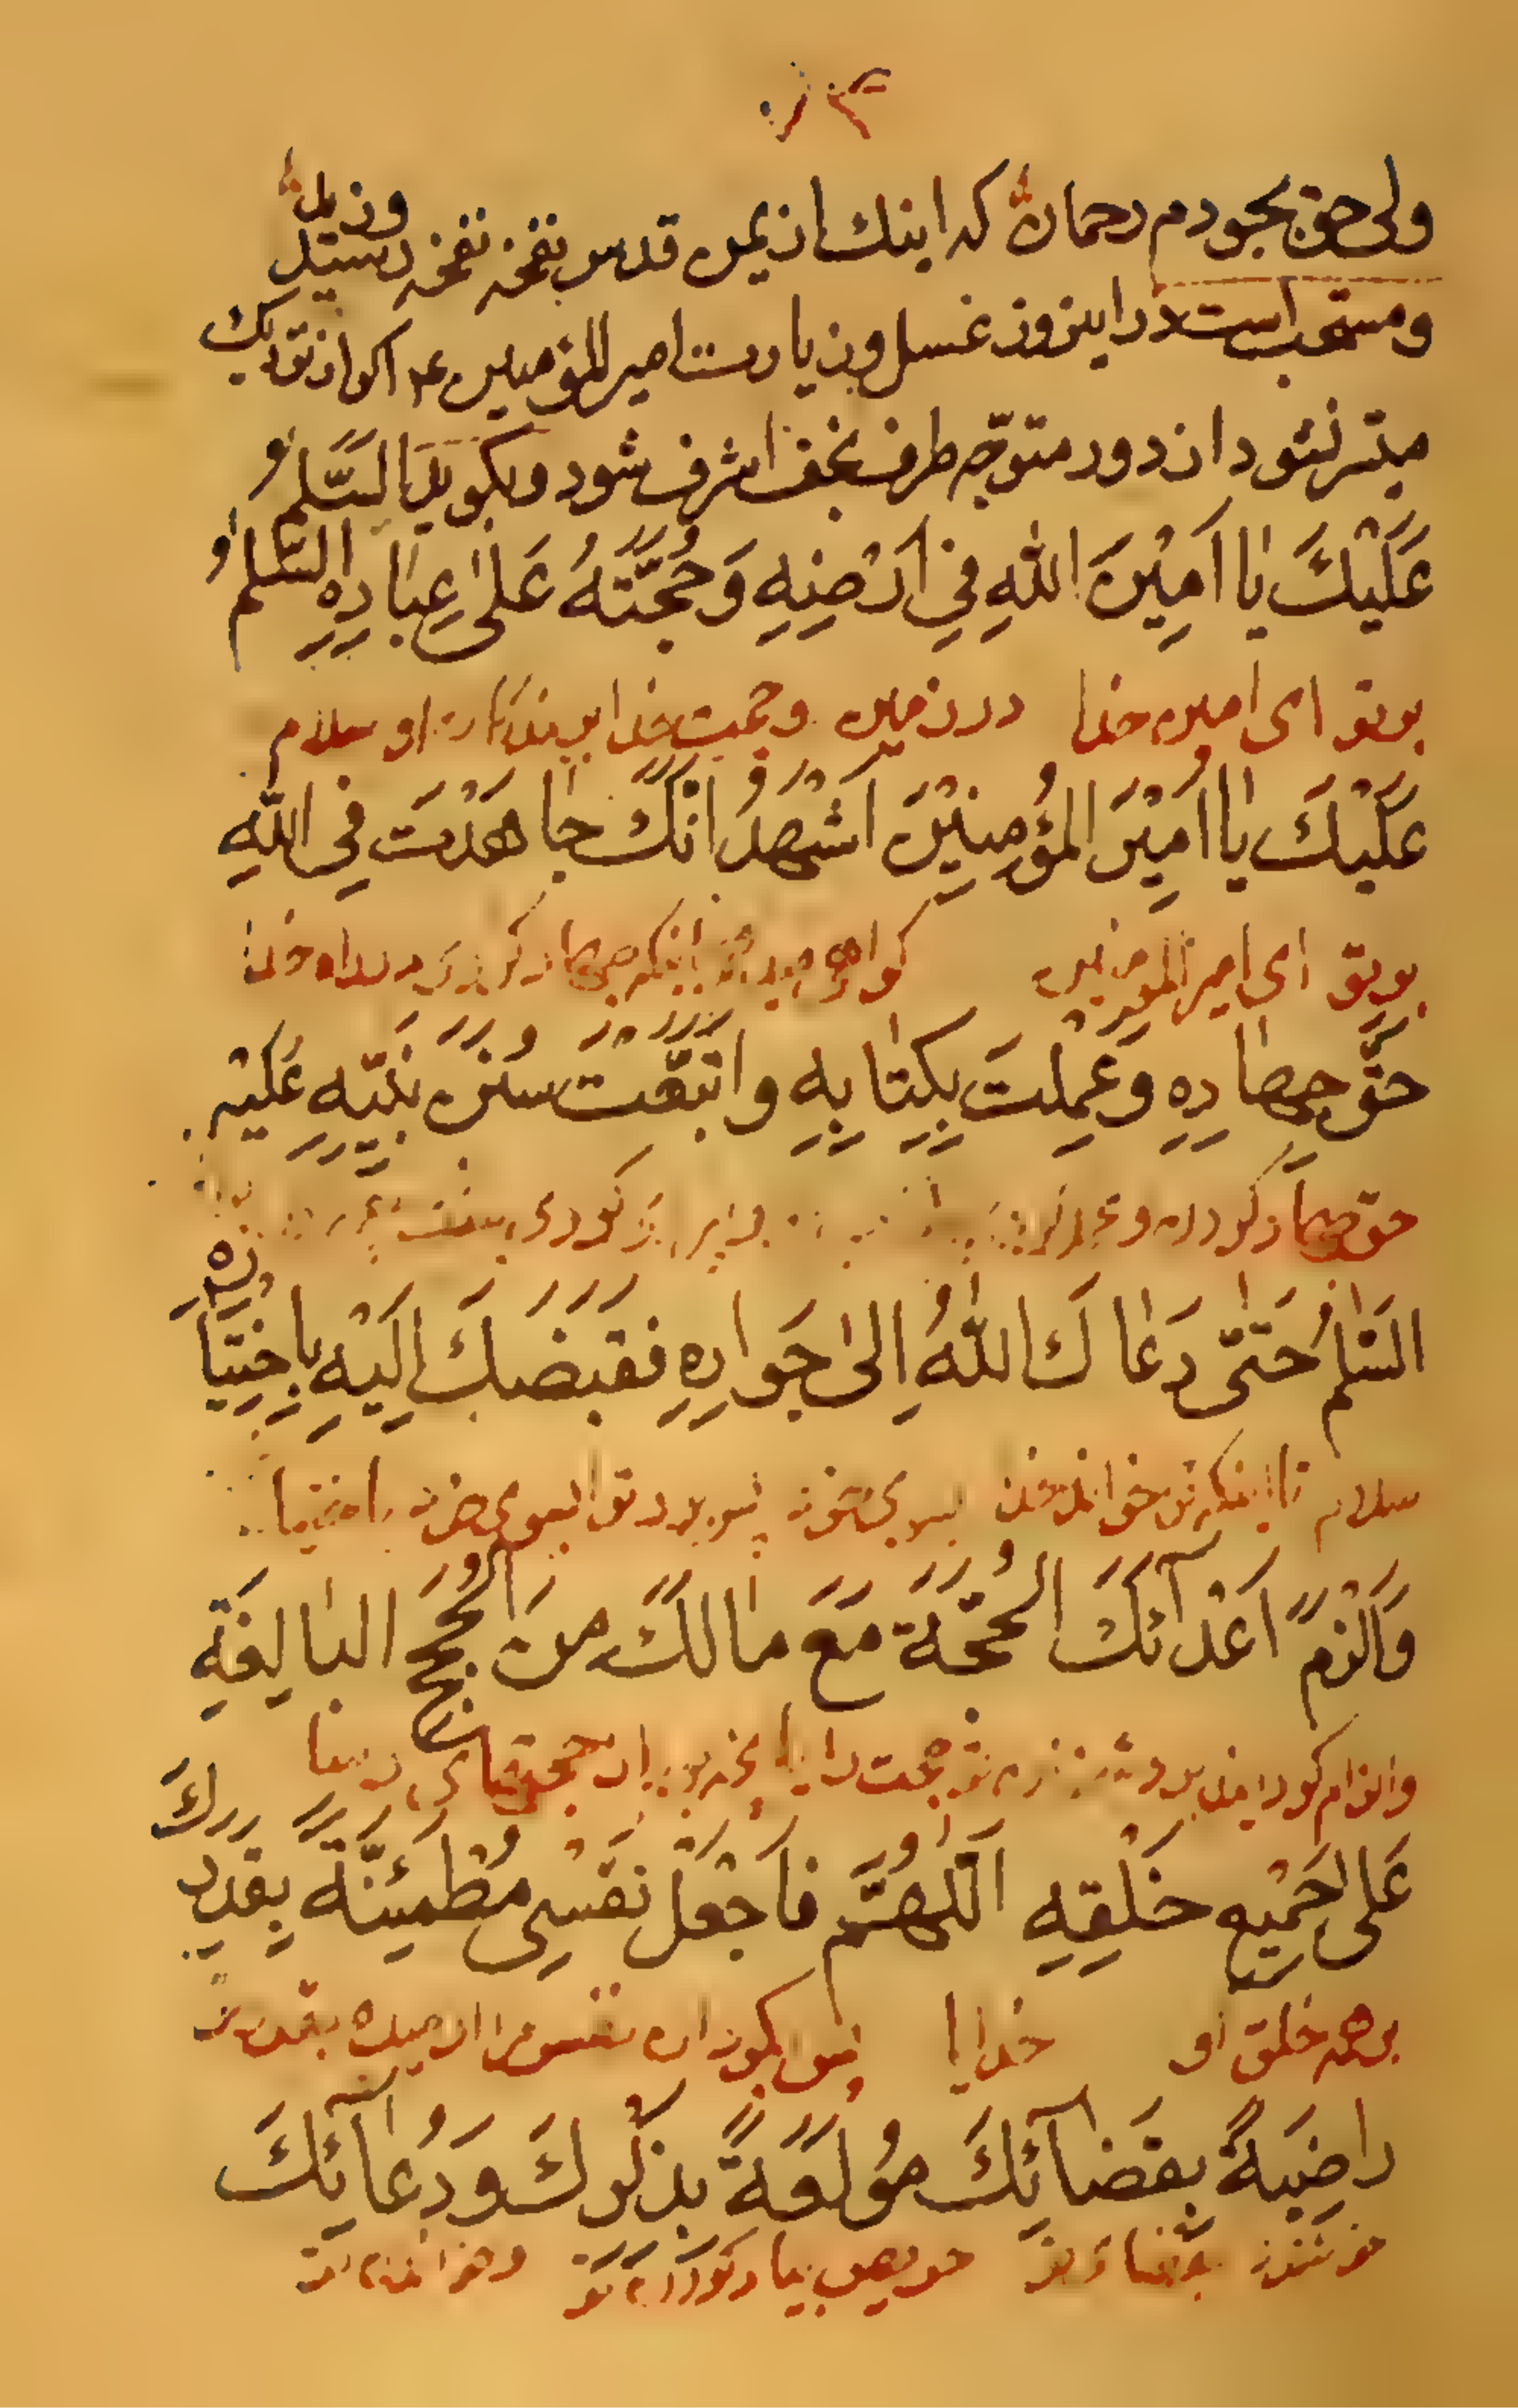 ولی حق بجودم رحمان که اینک از یمن قدس نفخه نفخه رسید وزید
و مستحب است در این روز غسل و زیارت امیر المؤمنین ع اگر از نزدیک
میسر نشود از دور متوجه طرف نجف اشرف شود و بگوید اَلسَّلٰمُ
عَلَيْكَ يٰا اَمِيْنَ اللّٰهِ فِي اَرْضِهِ وَحُجَّتَهُ عَلٰى عِبٰادِهِ السَّلٰمُ
بر تو ای امین خدا در زمین و حجت خدا بر بندگان او سلام
عَلَيْكَ يٰا اَمِيْرَ المُؤْمِنِيْنَ اَشْهَدُ اَنَّكَ جٰاهَدْتَ فِي اللّٰهِ
بر تو ای امیر المؤمنین گواهی میدهم اینکه جهاد کردی در راه خدا
حَقَّ جِهٰادِهِ وَعَمِلْتَ بِكِتٰابِهِ وَاتَّبَعْتَ سُنَنَ نَبِيِّهِ عَلَيْهِ
حق جهاد کردن و
السَّلٰمُ حَتّٰى دَعٰاكَ اللّٰهُ اِلىٰ جَوارِهِ فَقَبَضَكَ اِلَيْهِ بِاخْتِيٰارِهِ
سلام تا اینکه تو خواند خدا بسوی خود باختیار
وَاَلْزَمَ اَعْدٰآئَكَ الحُجَّةَ مَعَ مٰالَكَ مِنَ الحُجَجِ البٰالِغَةِ
و الزام کرد حجت را با آنچه از حجتهای رسا
عَلىٰ جَمِيْعِ خَلْقِهِ اَللّٰهُمَّ فَاجْعَلْ نَفْسِى مُطْمَئِنَّةً بِقَدَرِكَ
بر همه خلق او خدایا پس بگردان نفس مرا ارمیده بقدر
راضِيَةً بِقَضٰآئِكَ مُولَعَةً بِذِكْرِكَ وَدُعٰآئِكَ
خوشنود بقضای تو حریص بیاد کردن تو و خواندن تو